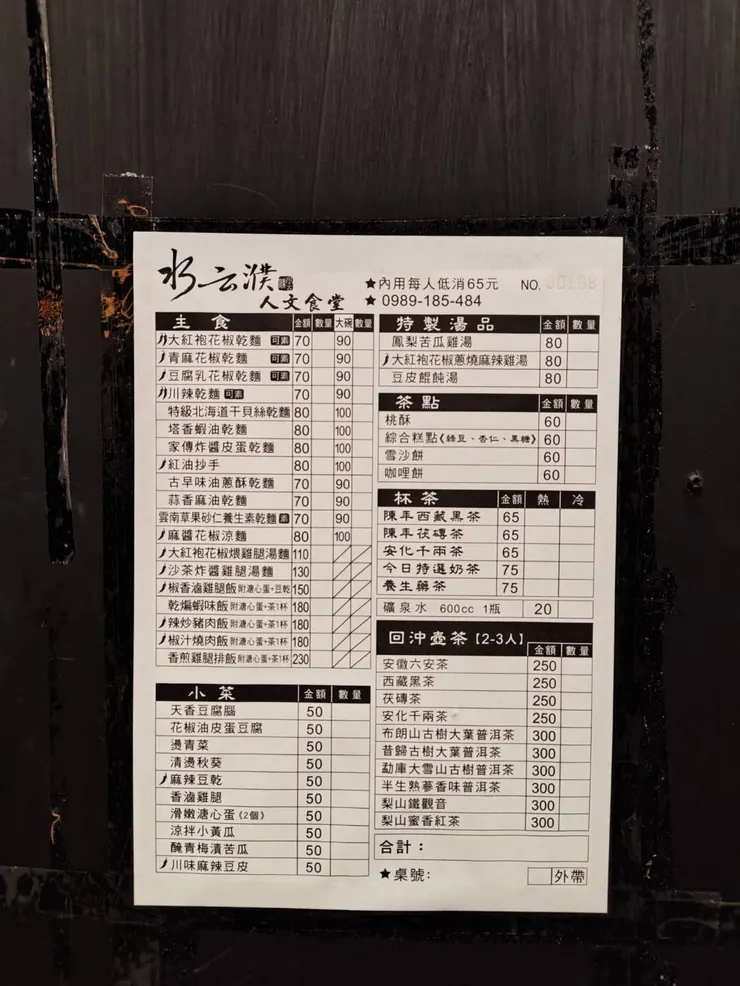 水云濮
人文食堂
★內用每人低消65元 NO. 00108
★ 0989-185-484
主食 金額 數量 大碗 數量
大紅袍花椒乾麵 可素 70 90
青麻花椒乾麵 可素 70 90
豆腐乳花椒乾麵 可素 70 90
川辣乾麵 可素 70 90
特級北海道干貝絲乾麵 80 100
塔香蝦油乾麵 80 100
家傳炸醬皮蛋乾麵 80 100
紅油抄手 80 100
古早味油蔥酥乾麵 70 90
蒜香麻油乾麵 70 90
雲南草果砂仁養生素乾麵 素 70 90
麻醬花椒涼麵 80 100
大紅袍花椒煨雞腿湯麵 110
沙茶炸醬雞腿湯麵 130
椒香滷雞腿飯 附溏心蛋+豆乾 150
乾煸蝦味飯 附溏心蛋+茶1杯 180
辣炒豬肉飯 附溏心蛋+茶1杯 180
椒汁燒肉飯 附溏心蛋+茶1杯 180
香煎雞腿排飯 附溏心蛋+茶1杯 230
小菜 金額 數量
天香豆腐腦 50
花椒油皮蛋豆腐 50
燙青菜 50
清燙秋葵 50
麻辣豆乾 50
香滷雞腿 50
滑嫩溏心蛋(2個) 50
涼拌小黃瓜 50
醃青梅漬苦瓜 50
川味麻辣豆皮 50
特製湯品 金額 數量
鳳梨苦瓜雞湯 80
大紅袍花椒蔥燒麻辣雞湯 80
豆皮餛飩湯 80
茶點 金額 數量
桃酥 60
綜合糕點《綠豆、杏仁、黑糖》 60
雪沙餅 60
咖哩餅 60
杯茶 金額 熱 冷
陳年西藏黑茶 65
陳年茯磚茶 65
安化千兩茶 65
今日特選奶茶 75
養生藥茶 75
礦泉水 600cc 1瓶 20
回沖壺茶【2-3人】 金額 數量
安徽六安茶 250
西藏黑茶 250
茯磚茶 250
安化千兩茶 250
布朗山古樹大葉普洱茶 300
昔歸古樹大葉普洱茶 300
勐庫大雪山古樹普洱茶 300
半生熟蔘香味普洱茶 300
梨山鐵觀音 300
梨山蜜香紅茶 300
合計：
★桌號: 外帶